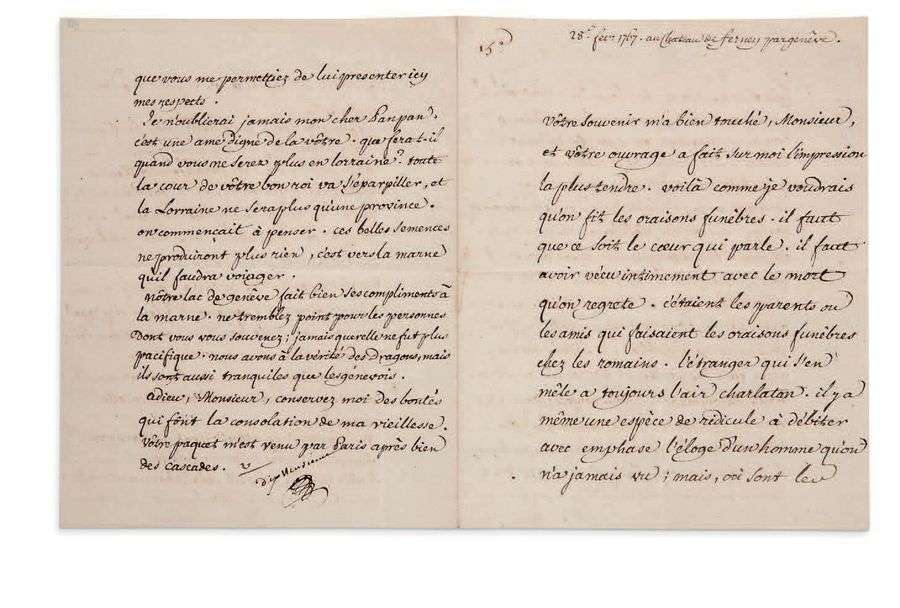 15e
28e. févr 1767. au chateau de ferney par genêve.
vôtre souvenir m'a bien touché, Monsieur,
et vôtre ouvrage a fait sur moi l'impression
la plus tendre. voilà comme je voudrais
qu'on fit les oraisons funêbres. il faut
que ce soit le cœur qui parle. il faut
avoir vécu intimement avec le mort
qu'on regrete. c'étaient les parents ou
les amis qui faisaient les oraisons funêbres
chez les romains. l'étranger qui s'en
mêle a toujours l'air charlatan. il y a
même une espèce de ridicule à débiter
avec emphase l'éloge d'un homme qu'on
n'a jamais vu ; mais, où sont les
que vous me permettiez de lui présenter icy
mes respects.
Je n'oublierai jamais mon cher Panpan,
c'est une ame digne de la vôtre. que fera-t-il
quand vous ne serez plus en lorraine? toute
la cour de vôtre bon roi va s'éparpiller, et
la Lorraine ne sera plus qu'une province.
on commençait à penser. ces belles semences
ne produiront plus rien, c'est vers la marne
qu'il faudra voiager.
nôtre lac de genêve fait bien ses compliments à
la marne. ne tremblez point pour les personnes
Dont vous vous souvenez; jamais querelle ne fut plus
pacifique. nous avons à la vérité des Dragons, mais
ils sont aussi tranquiles que les génevois.
adieu, Monsieur, conservez moi des bontés
qui font la consolation de ma vieillesse.
vôtre paquet m'est venu par Paris après bien
des cascades. V